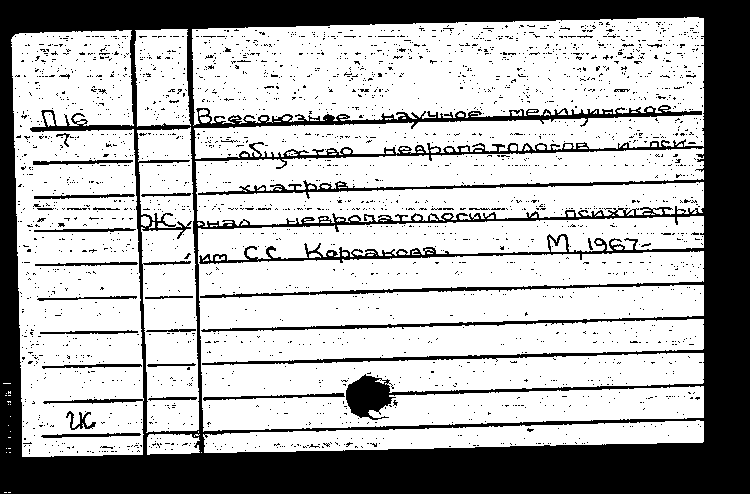 П16 Всесоюзное научное медицинское
7 общество невропатологов и пси-
хиатров.
Журнал невропатологии и психиатрии
им С.С. Корсакова. М., 1967-